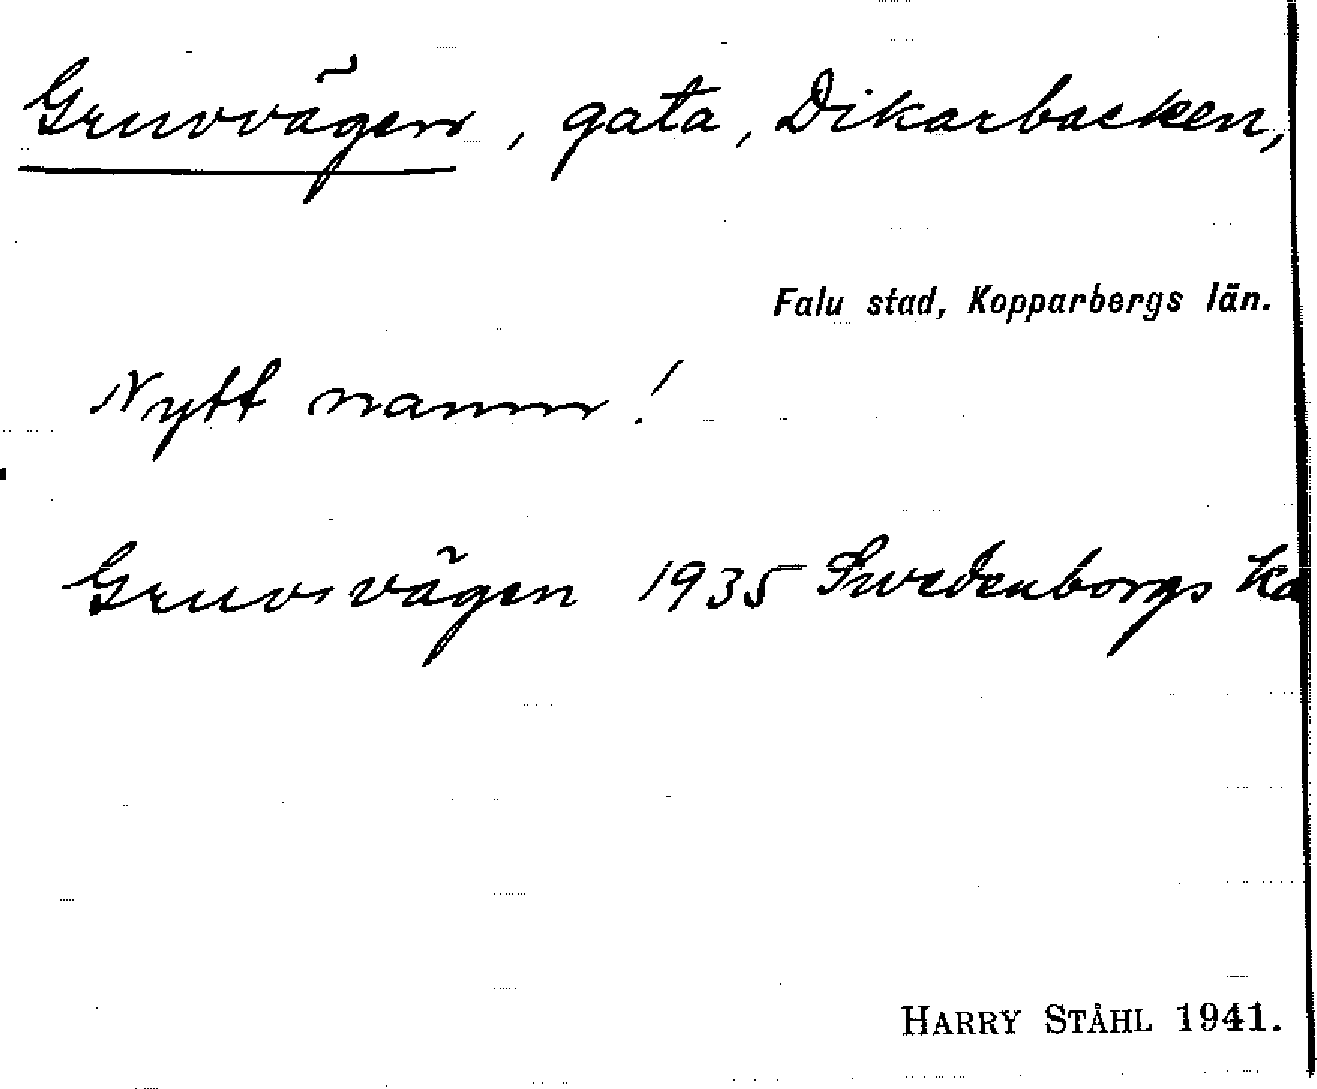 Gruvvägen, gata, Dikarbacken,
Falu stad, Kopparbergs län.
Nytt namn!
Gruvvägen 1935 Swedenborgs Ka
HARRY STÅHL 1941.